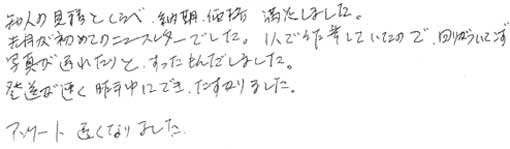 知人の見積とくらべ、納期、価格 満足しました。
先月が初めてのニュースレターでした。1人で作業していたので、回りがついてず
写真が遅れたりと、すったもんだしました。
発送が速く 昨年中にでき、たすかりました。
アンケート 遅くなりました。